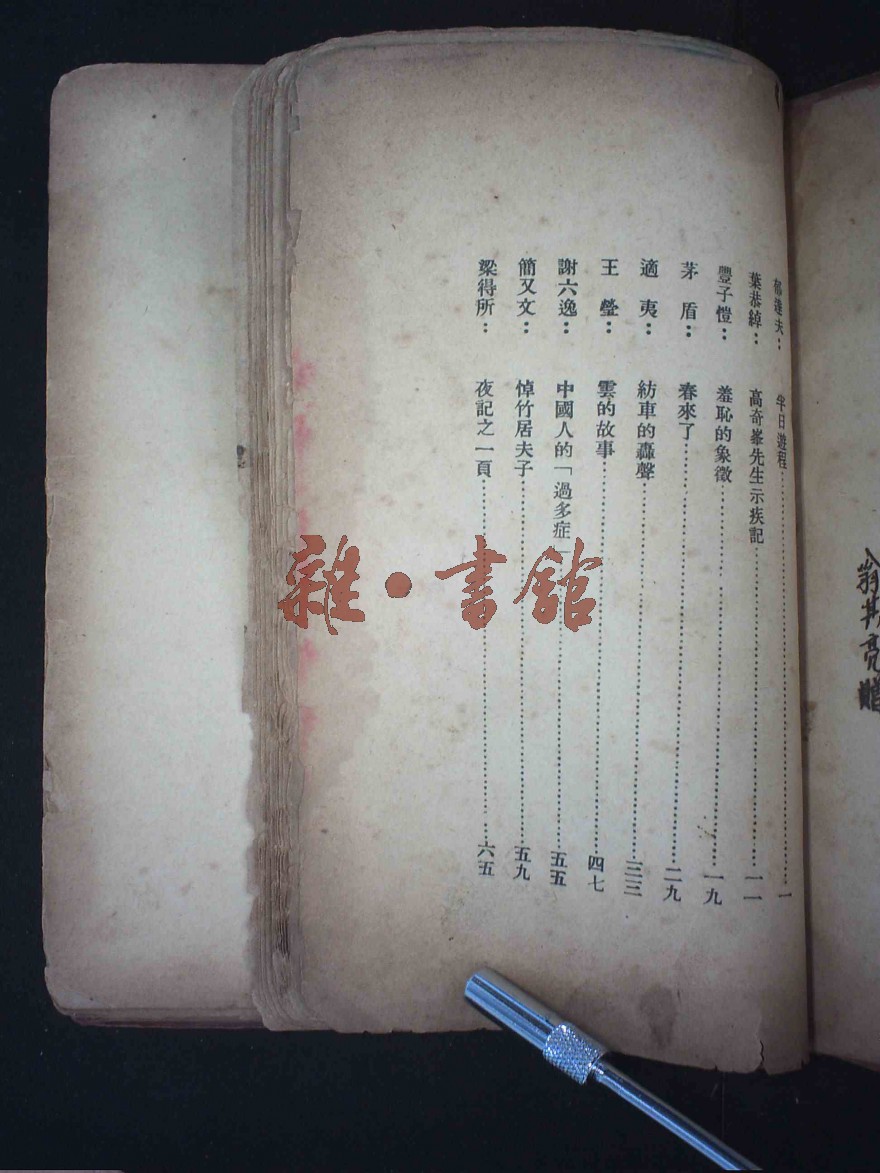 翁其亮贈
郁達夫：半日遊程……一
葉恭綽：高奇峯先生示疾記……一一
豐子愷：羞恥的象徵……一九
茅盾：春來了……二九
適夷：紡車的轟聲……三三
王瑩：雲的故事……四七
謝六逸：中國人的「過多症」……五五
簡又文：悼竹居夫子……五九
梁得所：夜記之一頁……六五
雜·書館